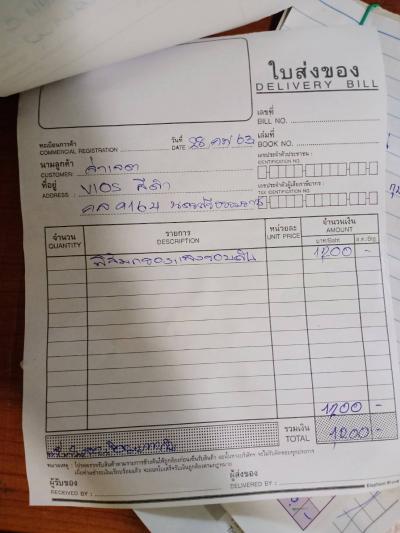 ใบส่งของ
DELIVERY BILL
เลขที่
BILL NO.
ทะเบียนการค้า
COMMERCIAL REGISTRATION
วันที่
DATE 28 กพ 63
เล่มที่
BOOK NO.
นามลูกค้า
CUSTOMER
เลขประจำตัวประชาชน
IDENTIFICATION NO.
ที่อยู่
ADDRESS VIOS สีดำ
เลขประจำตัวผู้เสียภาษีอากร
TAX IDENTIFICATION NO.
9164 นครศรีธรรมราช
จำนวน
QUANTITY
รายการ
DESCRIPTION
หน่วยละ
UNIT PRICE
จำนวนเงิน
AMOUNT
บาท/Baht ส.ต./Stg.
ฟิล์มกรองแสงรอบคัน 1,200 -
1,200 -
รวมเงิน
TOTAL 1,200 -
ผู้รับของ
RECEIVED BY :
ผู้ส่งของ
DELIVERED BY :
Elephant Brand